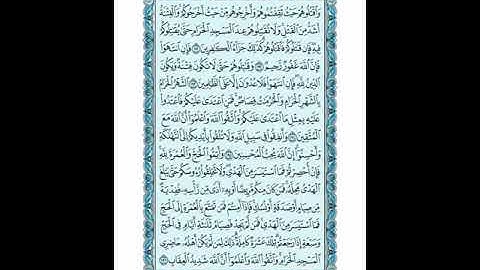 وَٱقْتُلُوهُمْ حَيْثُ ثَقِفْتُمُوهُمْ وَأَخْرِجُوهُم مِّنْ حَيْثُ أَخْرَجُوكُمْ وَٱلْفِتْنَةُ
أَشَدُّ مِنَ ٱلْقَتْلِ وَلَا تُقَٰتِلُوهُمْ عِندَ ٱلْمَسْجِدِ ٱلْحَرَامِ حَتَّىٰ يُقَٰتِلُوكُمْ
فِيهِ فَإِن قَٰتَلُوكُمْ فَٱقْتُلُوهُمْ كَذَٰلِكَ جَزَآءُ ٱلْكَٰفِرِينَ ١٩١ فَإِنِ ٱنتَهَوْا۟
فَإِنَّ ٱللَّهَ غَفُورٌ رَّحِيمٌ ١٩٢ وَقَٰتِلُوهُمْ حَتَّىٰ لَا تَكُونَ فِتْنَةٌ وَيَكُونَ
ٱلدِّينُ لِلَّهِ فَإِنِ ٱنتَهَوْا۟ فَلَا عُدْوَٰنَ إِلَّا عَلَى ٱلظَّٰلِمِينَ ١٩٣ ٱلشَّهْرُ ٱلْحَرَامُ
بِٱلشَّهْرِ ٱلْحَرَامِ وَٱلْحُرُمَٰتُ قِصَاصٌ فَمَنِ ٱعْتَدَىٰ عَلَيْكُمْ فَٱعْتَدُوا۟
عَلَيْهِ بِمِثْلِ مَا ٱعْتَدَىٰ عَلَيْكُمْ وَٱتَّقُوا۟ ٱللَّهَ وَٱعْلَمُوٓا۟ أَنَّ ٱللَّهَ مَعَ
ٱلْمُتَّقِينَ ١٩٤ وَأَنفِقُوا۟ فِى سَبِيلِ ٱللَّهِ وَلَا تُلْقُوا۟ بِأَيْدِيكُمْ إِلَى ٱلتَّهْلُكَةِ
وَأَحْسِنُوٓا۟ إِنَّ ٱللَّهَ يُحِبُّ ٱلْمُحْسِنِينَ ١٩٥ وَأَتِمُّوا۟ ٱلْحَجَّ وَٱلْعُمْرَةَ لِلَّهِ
فَإِنْ أُحْصِرْتُمْ فَمَا ٱسْتَيْسَرَ مِنَ ٱلْهَدْىِ وَلَا تَحْلِقُوا۟ رُءُوسَكُمْ حَتَّىٰ يَبْلُغَ
ٱلْهَدْىُ مَحِلَّهُۥ فَمَن كَانَ مِنكُم مَّرِيضًا أَوْ بِهِۦٓ أَذًى مِّن رَّأْسِهِۦ فَفِدْيَةٌ
مِّن صِيَامٍ أَوْ صَدَقَةٍ أَوْ نُسُكٍ فَإِذَآ أَمِنتُمْ فَمَن تَمَتَّعَ بِٱلْعُمْرَةِ إِلَى ٱلْحَجِّ
فَمَا ٱسْتَيْسَرَ مِنَ ٱلْهَدْىِ فَمَن لَّمْ يَجِدْ فَصِيَامُ ثَلَٰثَةِ أَيَّامٍ فِى ٱلْحَجِّ
وَسَبْعَةٍ إِذَا رَجَعْتُمْ تِلْكَ عَشَرَةٌ كَامِلَةٌ ذَٰلِكَ لِمَن لَّمْ يَكُنْ أَهْلُهُۥ حَاضِرِى
ٱلْمَسْجِدِ ٱلْحَرَامِ وَٱتَّقُوا۟ ٱللَّهَ وَٱعْلَمُوٓا۟ أَنَّ ٱللَّهَ شَدِيدُ ٱلْعِقَابِ ١٩٦